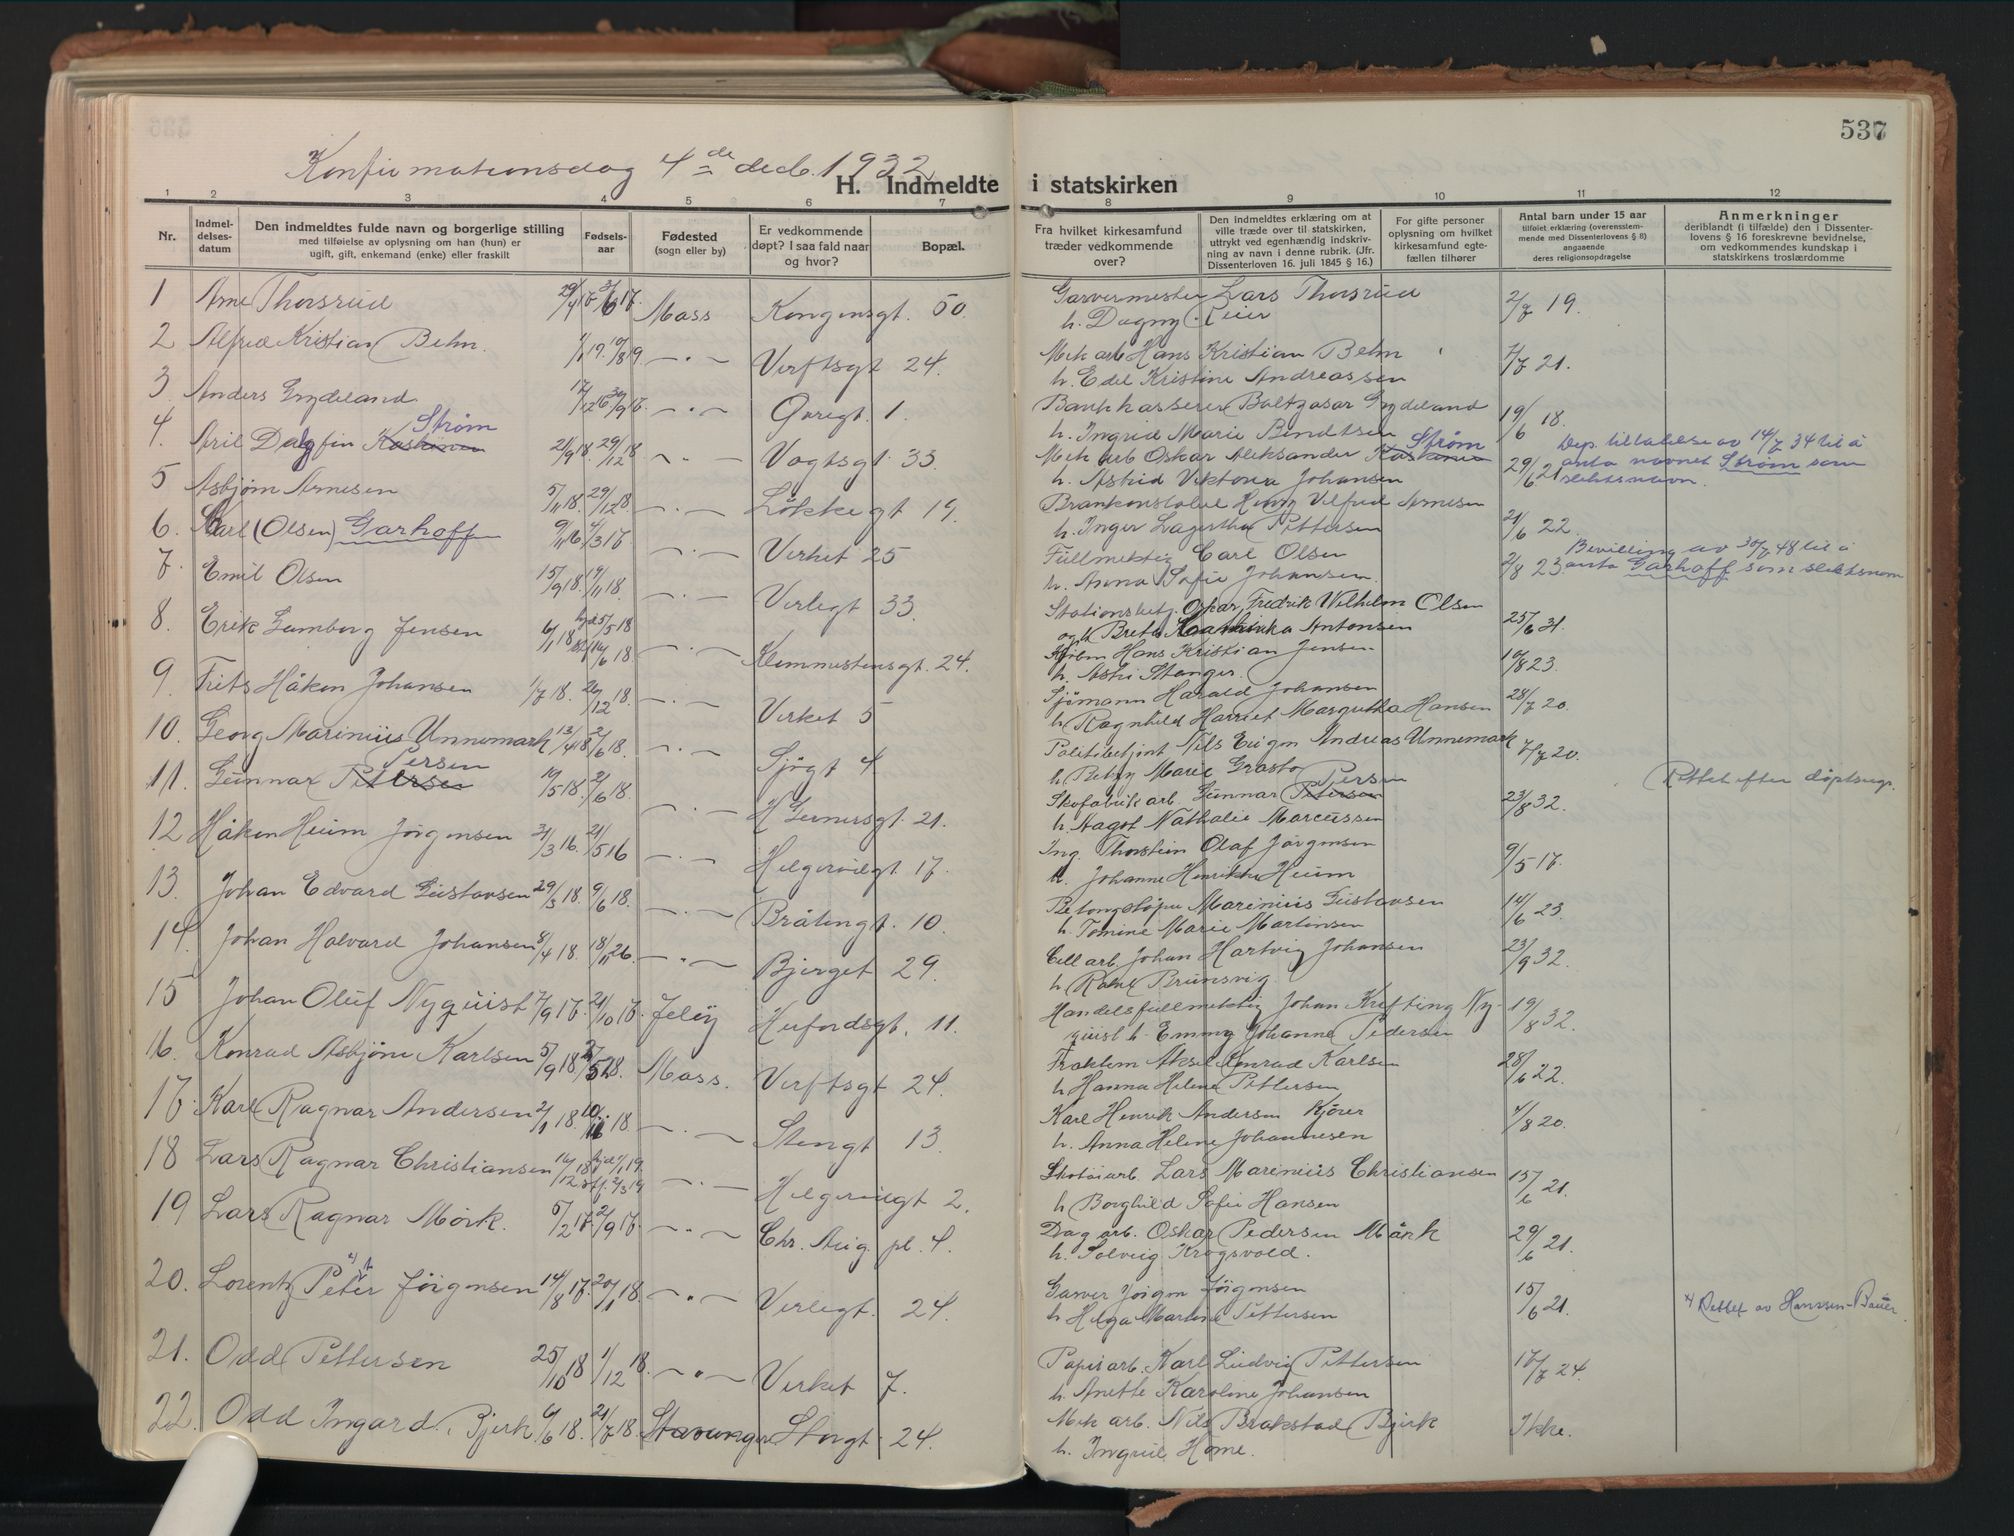 537
Konfirmationsdag 4de decb. 1932
H. Indmeldte i statskirken
1 2 3 4 5 6 7 8 9 10 11 12
Nr.
Indmel-
delses-
datum
Den indmeldtes fulde navn og borgerlige stilling
med tilføielse av oplysning om han (hun) er
ugift, gift, enkemand (enke) eller fraskilt
Fødsels-
aar
Fødested
(sogn eller by)
Er vedkommende
døpt? I saa fald naar
og hvor?
Bopæl.
Fra hvilket kirkesamfund
træder vedkommende
over?
Den indmeldtes erklæring om at
ville træde over til statskirken,
uttrykt ved egenhændig indskriv-
ning av navn i denne rubrik. (Jfr.
Dissenterloven 16. juli 1845 § 16.)
For gifte personer
oplysning om hvilket
kirkesamfund egte-
fællen tilhører
Antal barn under 15 aar
tilføiet erklæring (overensstem-
mende med Dissenterlovens § 8)
angaaende
deres religionsopdragelse
Anmerkninger
deriblandt (i tilfælde) den i Dissenter-
lovens § 16 foreskrevne bevidnelse,
om vedkommendes kundskap i
statskirkens troslærdomme
1 Arne Thorsrud 29/4 17 3/6 17. Moss Kongensgt. 50. Garvermester Lars Thorsrud 2/7 19.
h. Dagny Eier
2 Alfred Kristian Behm. 1/1 19. 10/8 19 — " — Verftsgt 24. Mek arb Hans Kristian Behm 7/7 21.
h. Edel Kristine Andreassen
3 Anders Grydeland 17/12 16 30/9 17. — " — Øvregt. 1. Bankkasserer Baltzasar Grydeland 19/6 18.
h. Ingrid Marie Bendtsen
4. Aril Dagfin Kaskinen Strøm 21/9 18. 29/12 18 — " — Vogtsgt. 33. Mek arb Oskar Aleksander Kaskinen Strøm 29/6 21 Dep. tillatelse av 14/7 34 til å
anta navnet Strøm som
slektsnavn.
h. Astrid Viktoria Johansen
5 Asbjørn Arnesen 5/11 18. 29/12 18. — " — Løkkegt 19. Brankonstabel Henry Vilfred Arnesen 21/6 22.
h. Inger Lagertha Pettersen
6. Karl (Olsen) Garhoff 9/11 16 4/3 17 — " — Verket 25 Fullmektig Carl Olsen 2/8 23. Bevilling av 30/7 48 til å
anta Garhoff som slektsnavn
h. Anna Sofie Johansen.
7. Emil Olsen 15/9 18. 19/11 18. — " — Verlegt 33. Stationsbetj. Oskar Fredrik Wilhelm Olsen 25/6 31.
og h Breta Antonsen
8. Erik Lamberg Jensen 6/1 18 25/5 18 16/6 18. — " — Klommestensgt. 24. Kjøbm Hans Kristian Jensen 10/8 23.
h. Astri Stanger.
9. Frits Håkon Johansen 1/7 18. 26/12 18. — " — Verket 5 Sjömann Harald Johansen 28/7 20.
h. Ragnhild Harriet Margretha Hansen
10. Georg Marinius Unnemark 13/4 18 2/6 18. — " — Sjøgt 4. Politibetjent Nils Eugen Andreas Unnemark 7/7 20.
h. Betzy Marie Grasto
11. Gunnar Petersen Persen 10/5 18. 2/6 18. — " — H Gernersgt. 21. Skofabrik arb. Gunnar Petersen Persen 23/8 32. Rettet efter dåpsungr.
h. Aagot Nathalie Marcussen
12 Håkon Heum Jörgensen 31/3 16. 21/5 16 — " — Helgerødgt 17. Ing. Thorstein Olaf Jørgensen 9/5 17.
h. Johanne Henrikke Heum
13. Johan Edvard Gustavsen 29/3 18. 9/6 18. — " — Bråtengt. 10. Betongstøper Marinius Gustavsen 14/6 23.
h. Tomine Marie Martinsen
14. Johan Halvard Johansen 8/4 18. 18/11 26. — " — Bjerget 29. Cell arb. Johan Hartvig Johansen 23/9 32.
h Brunsvig.
15 Johan Oluf Nyquist 7/9 17. 21/10 17. Jeløy Herfordsgt. 11. Handelsfullmektig Johan Krefting Ny- 19/8 32.
quist h. Emmy Johanne Pedersen
16. Konrad Asbjörn Karlsen 5/9 18 28. Moss. Verftsgt 24. Fraktem Aksel Konrad Karlsen 28/6 22.
h Hanna Helene Pettersen
17. Karl Ragnar Andersen 2/1 18. 10 18 — " — Stengt 13. Karl Henrik Andersen Kjörer 4/8 20.
h. Anna Helene Johannesen
18 Lars Ragnar Christiansen 16/12 18 1/1 19 stf. 2/3 19 — " — Helgerødgt 2. Skotøiarb. Lars Marinius Christiansen 15/6 21.
h Borghild Sofie Hansen
19 Lars Ragnar Mörk. 5/2 17. 2/9 17. — " — Chr. Aug. pl. 4. Dag arb. Oskar Pedersen Mörk 29/6 21.
h. Solveig Krogsvold.
20. Lorentz Peter Jörgensen 14/8 17. 20/1 18. — " — Verlegt. 24. Garver Jörgen Jörgensen 15/6 21. x) Rettet av Hanssen-Bauer
h Helga Martine Pettersen
21. Odd Pettersen 25/10 18 1/12 18. — " — Verket 7. Papirarb. Karl Ludvig Pettersen 17/7 24.
h. Anette Karoline Johansen
22. Odd Ingard. Bjerk 6/6 18. 21/7 18. Stavanger Storgt 24. Mek arb. Nils Brakstad Bjerk Ikke.
h. Ingrid Home.